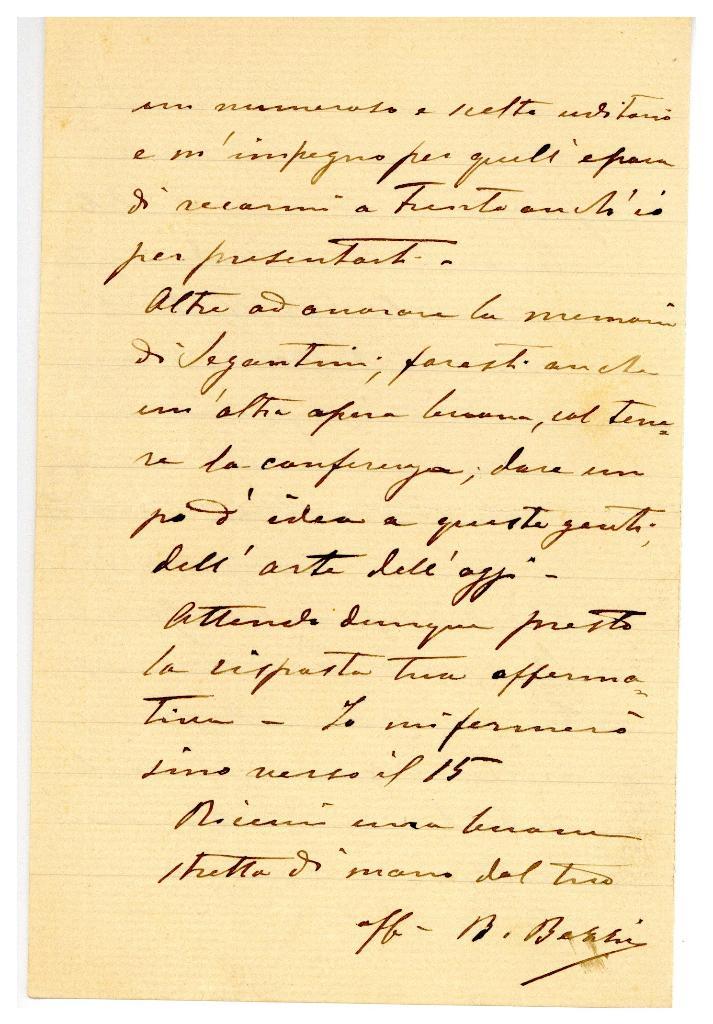 un numeroso e scelto uditorio
e m'impegno per quell'epoca
di recarmi a Trento anch'io
per presentarti.
Oltre ad onorare la memoria
di Segantini, faresti anche
un'altra opera buona, col tene=
re la conferenza; dare un
pò d'idea a queste genti,
dell'arte dell'oggi -
Attendo dunque presto
la risposta tua afferma=
tiva - Io mi fermerò
sino verso il 15
Ricevi una buona
stretta di mano dal tuo
aff - B. Bezzi